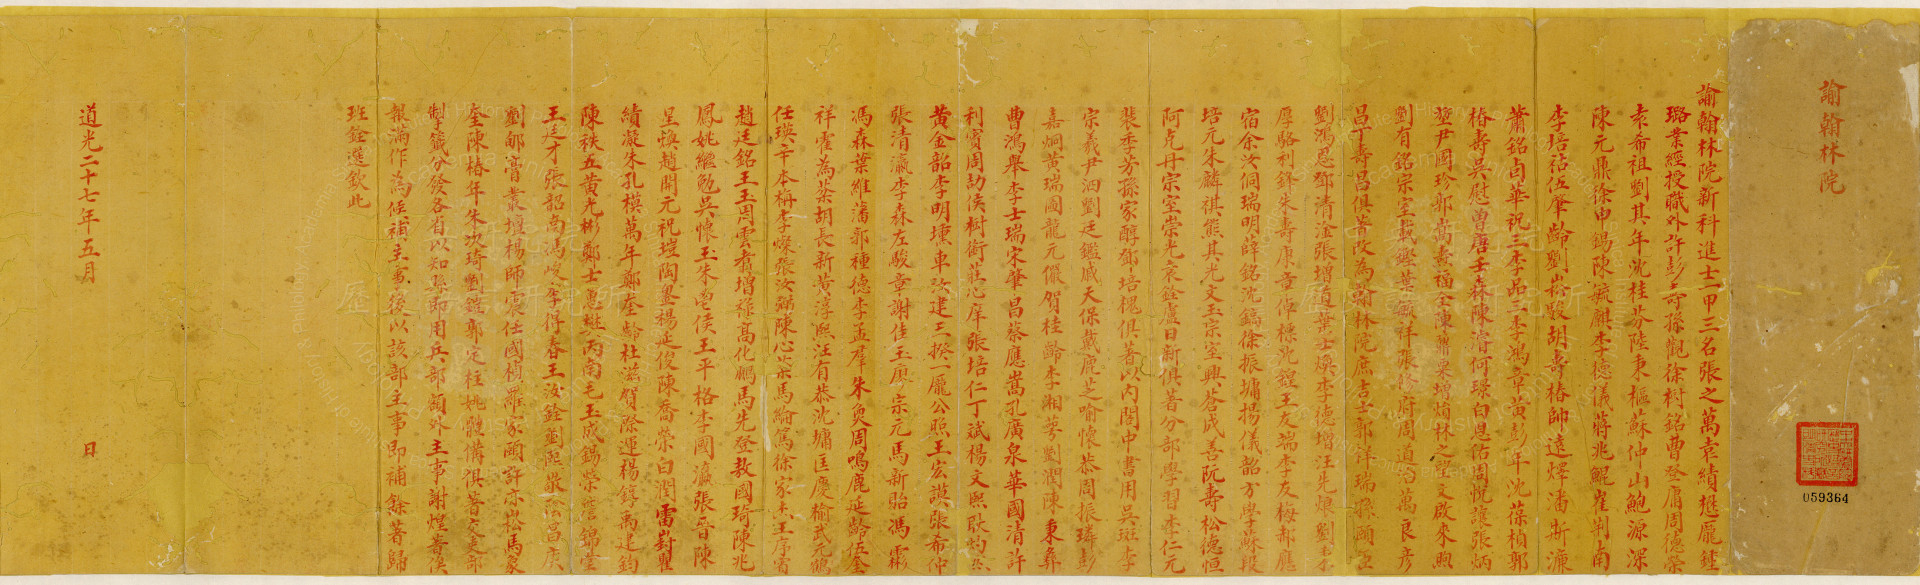 諭翰林院
059364
諭翰林院新科進士一甲三名張之萬袁績懋龐鍾
璐業經授職外許彭壽孫觀徐樹銘曹登庸周德榮
袁希祖劉其年沈桂芬陸秉樞蘇仲山鮑源深
陳元鼎徐申錫陳毓麒李德儀蔣兆鯤崔荆南
李培祜伍肇齡劉崧駿胡壽椿帥遠燡潘斯濂
蕭銘卣華祝三李品三李鴻章黃彭年沈葆楨郭
椿壽吳慰曾唐壬森陳濬何璟白恩佑周悅讓張炳
堃尹國珍郭嵩燾福全陳鼐栗增熉林之望文啟來煦
劉有銘宗室載鏗葉毓祥張修府周道治萬良彥
昌丁壽昌俱著改為翰林院庶吉士郭祥瑞孫頤臣
劉鴻恩鄧清淦張增道葉士煥李德增汪先烺劉
厚駱利鋒朱壽康童偉標沈鍠王友端李友梅都應
宿余汝侗瑞明薛銘沈鎬徐振墉揚儀韶方學蘇段
培元朱麟祺熊其光文玉宗室興蒼成善阮壽松德恒
阿克丹宗室崇光裘銓盧日新俱著分部學習李仁元
裴季芳孫家醇鄧培槐俱著以內閣中書用吳斑李
宗羲尹泗劉廷鑑戚天保戴鹿芝喻懷恭周振璘彭
嘉炯黃瑞圖龍元儼賀桂齡李湘棻劉潤陳秉彝
曹鴻舉李士瑞宋肇昌蔡應嵩孔廣泉華國清許
利賓周劼侯樹銜莊心庠張培仁丁斌楊文熙
黃金韶李明壎車汝建王揆一龐公照王宏謨張希仲
張清瀛李森左駿章謝佳玉廖宗元馬新貽馮霖
馮森葉維藩郭種德李孟羣朱奐周鳴鹿延齡伍奎
祥霍為棻胡長新黃淳熙汪有恭沈墉匡慶榆武元鶴
任瑛千本梅李燦張汝弼陳心棻馬綸篤徐家杰王序賓
趙廷銘王玉周雲耆增祿高化鵬馬先登教國琦陳兆
鳳姚繼勉吳懷玉朱侯王平格李國瀛張晉陳
星煥趙開元祝塏陶壘楊延俊陳喬榮白潤雷對瞿
績凝朱孔模萬年鄭奎齡杜滋賀際運楊鋢禹建鈞
陳秩五黃光彬鄭士蕙懋丙南毛玉成錫榮詹錦堂
王廷才張韶南馮峻李得春王汝銓劉熙敬昌庚
劉郇膏叢壇楊師震任國楨羅家頤許亦崧馬象
奎陳椿年朱次琦劉鎰郭定柱姚體備俱著交吏部
掣籤分發各省以知縣即用兵部額外主事謝煌著俟
報滿作為候補主事後以該部主事即補餘著歸
班銓選欽此
道光二十七年五月　日